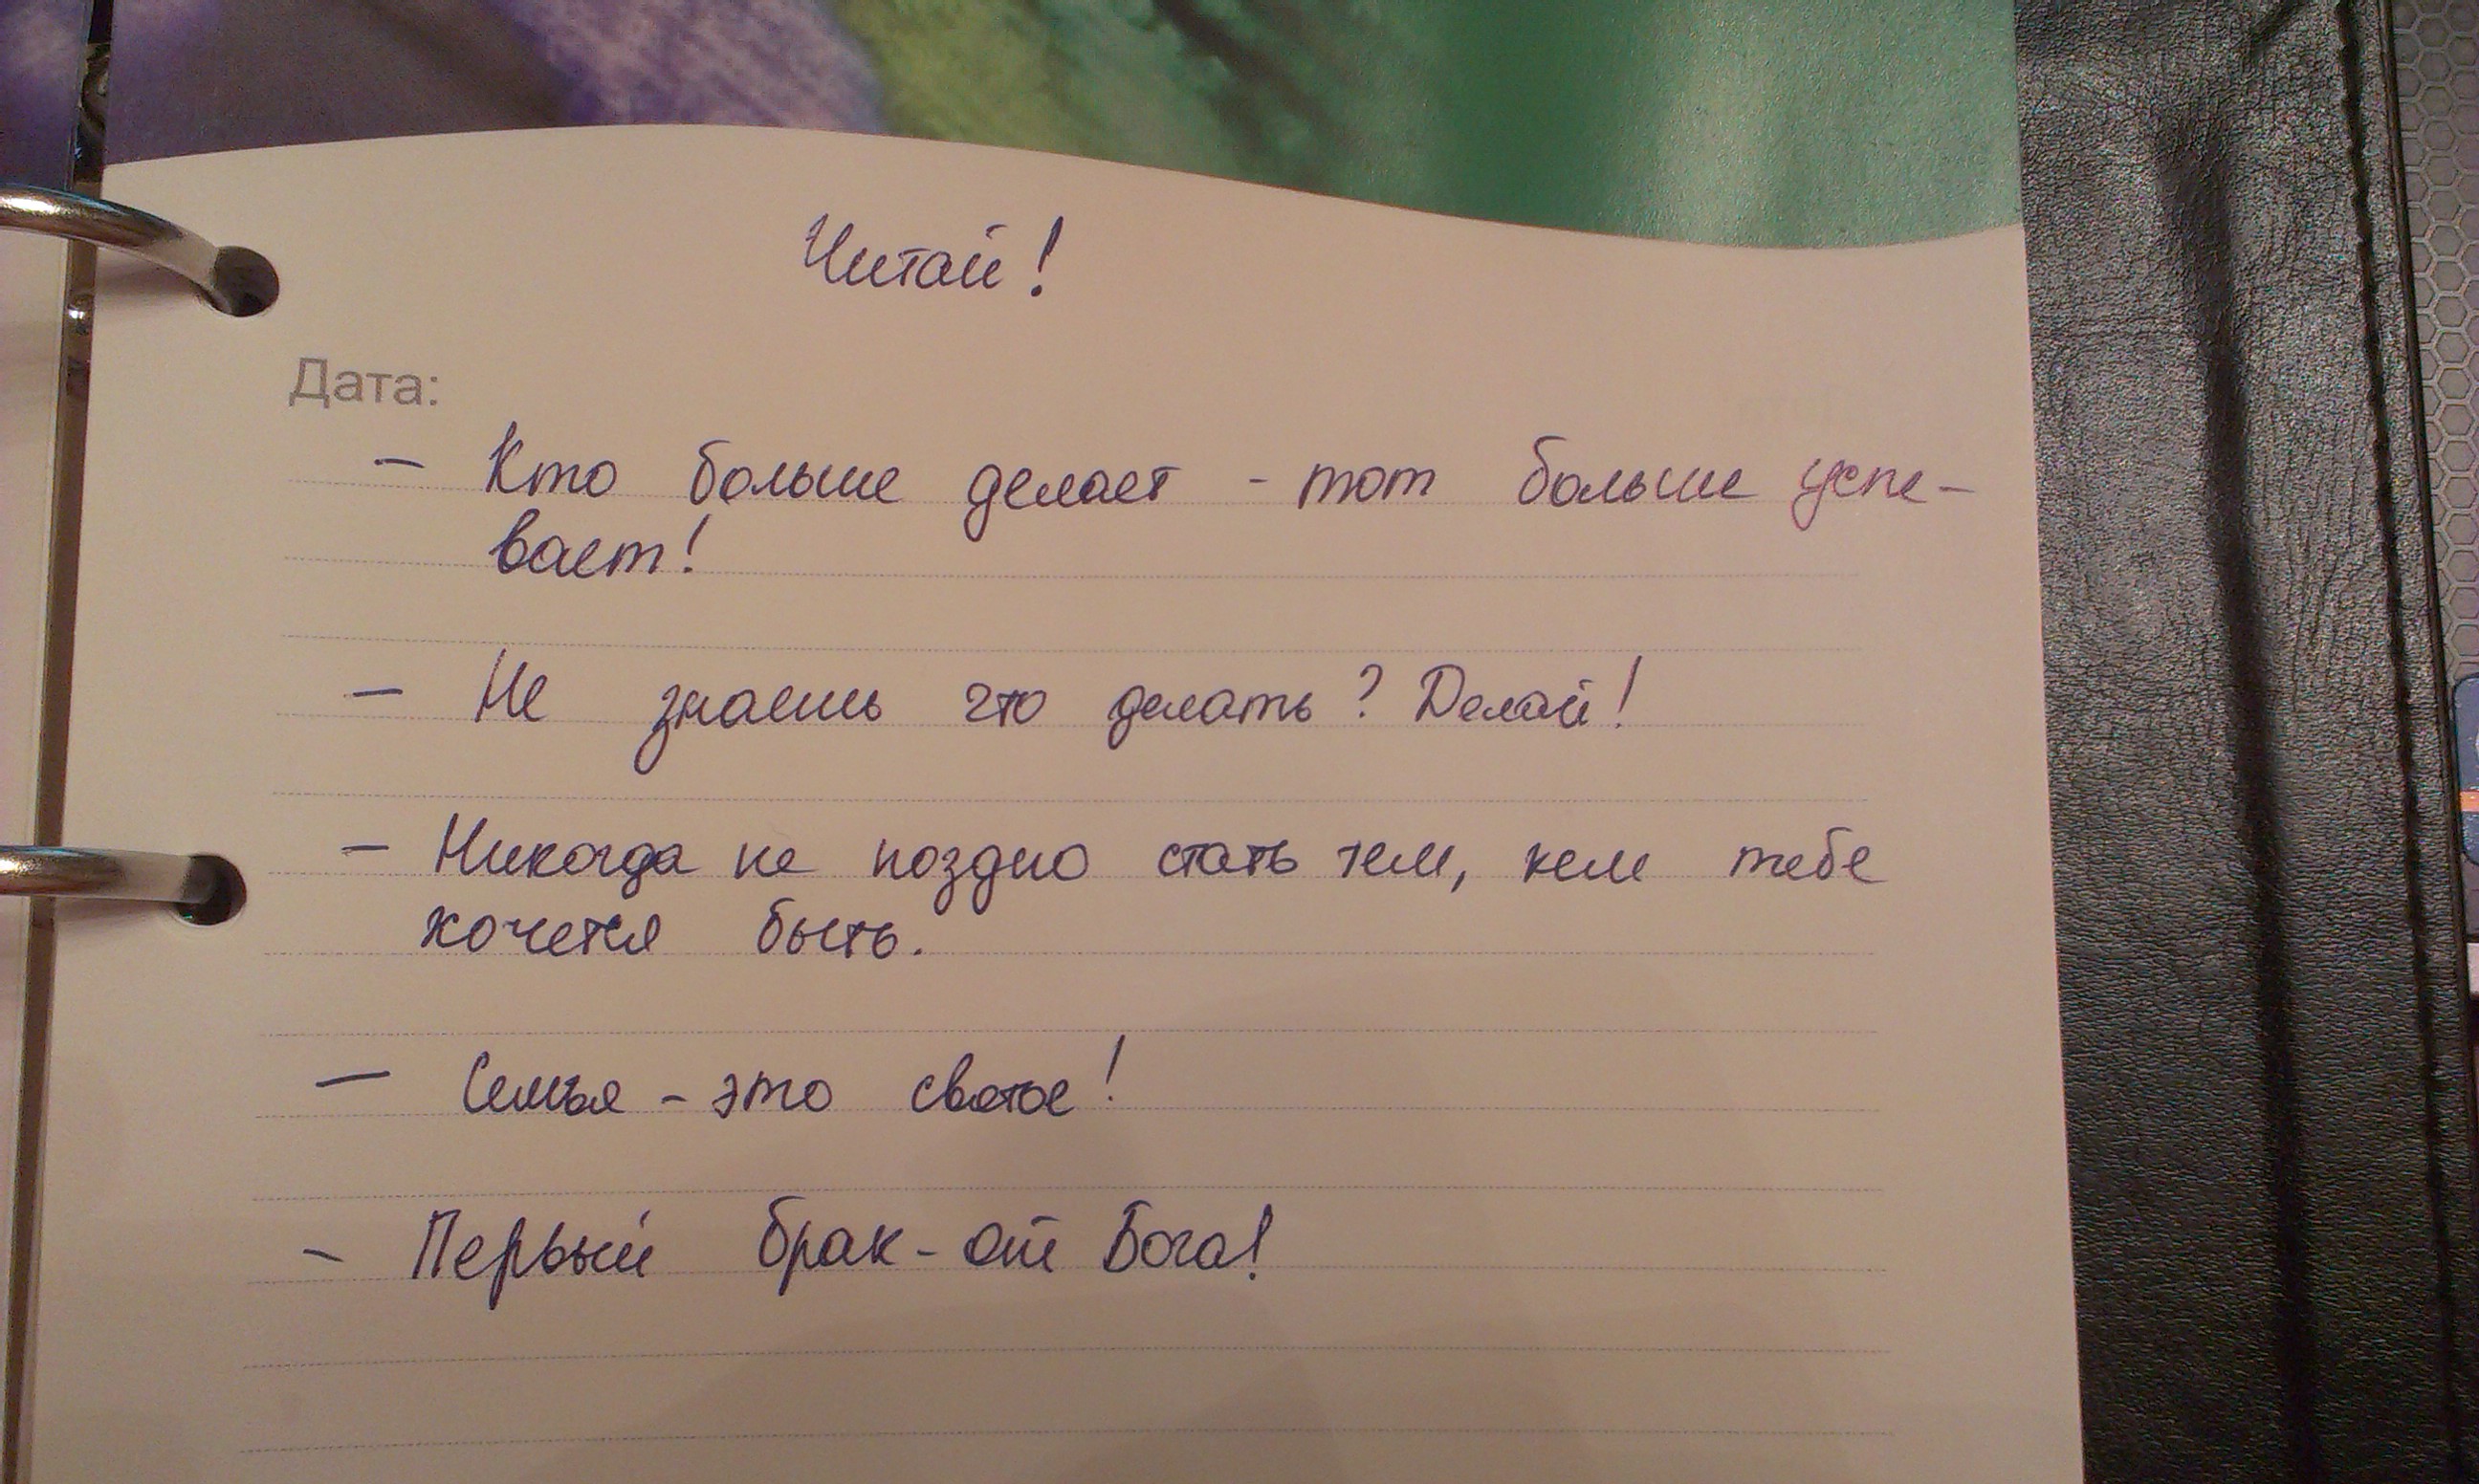 Читай!
Дата:
- Кто больше делает - тот больше успе-
вает!
- Не знаешь что делать? Делай!
- Никогда не поздно стать тем, кем тебе
хочется быть.
- Семья - это святое!
- Первый брак - от Бога!